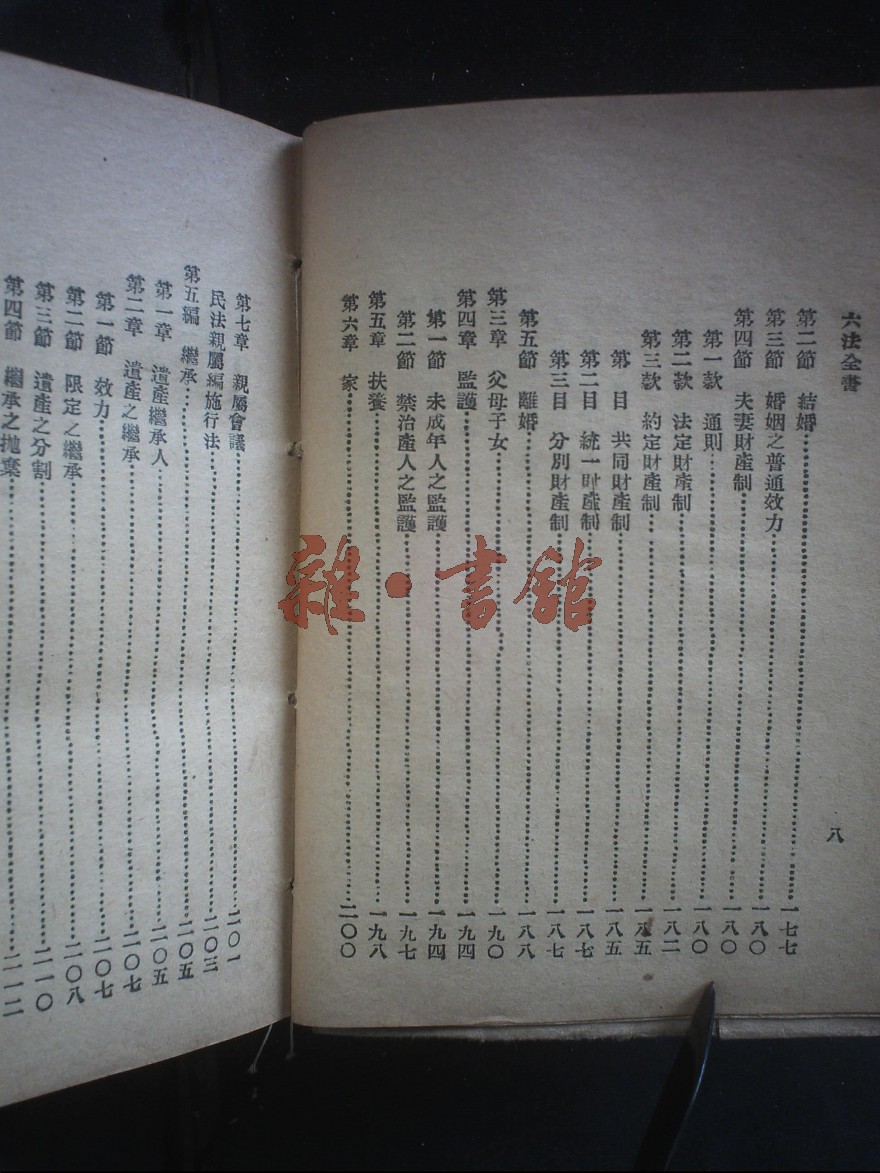 六法全書
八
第二節 結婚……一七七
第三節 婚姻之普通效力……一八〇
第四節 夫妻財產制……一八〇
第一款 通則……一八〇
第二款 法定財產制……一八二
第三款 約定財產制……一八五
第 目 共同財產制……一八五
第二目 統一財產制……一八七
第三目 分別財產制……一八七
第五節 離婚……一八八
第三章 父母子女……一九〇
第四章 監護……一九四
第一節 未成年人之監護……一九四
第二節 禁治產人之監護……一九七
第五章 扶養……一九八
第六章 家……二〇〇
第七章 親屬會議……二〇一
民法親屬編施行法……二〇三
第五編 繼承……二〇五
第一章 遺產繼承人……二〇五
第二章 遺產之繼承……二〇七
第一節 效力……二〇七
第二節 限定之繼承……二〇八
第三節 遺產之分割……二一〇
第四節 繼承之拋棄……二一二
雜·書館